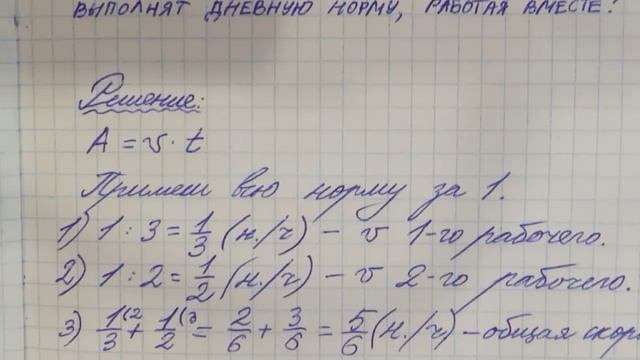 ВЫПОЛНЯТ ДНЕВНУЮ НОРМУ, РАБОТАЯ ВМЕСТЕ?
Решение:
A = v · t
Примем всю норму за 1.
1) 1 : 3 = 1/3 (н./ч) – v 1-го рабочего.
2) 1 : 2 = 1/2 (н./ч) – v 2-го рабочего.
3) 1/3 (2 + 1/2 (3 = 2/6 + 3/6 = 5/6 (н./ч) – общая скор